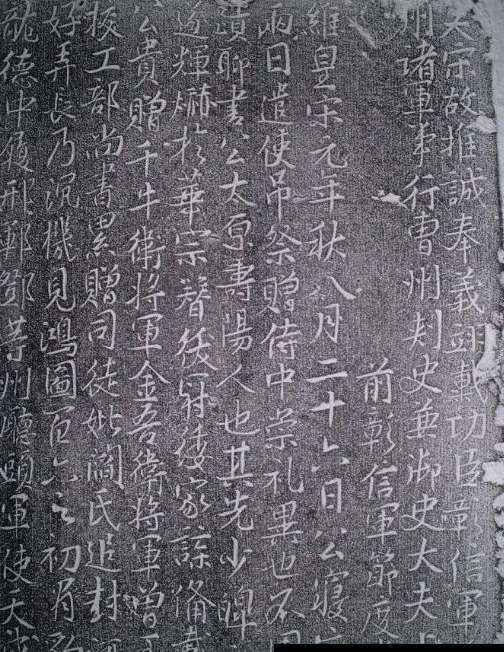 大宋故推誠奉義翊戴功臣彰信軍
州諸軍事行曹州刺史兼御史大夫
前彰信軍節度
維皇宋元年秋八月二十六日公寢
兩日遣使吊祭贈侍中崇礼異也不
蹟聊書公太原壽陽人也其先少
遂輝爀於華宗簪紱冠緌家諒備
公貴贈千牛衛將軍金吾衛將軍曾
挍工部尚書累贈司徒妣閻氏追封
好弄長乃沉機見鴻圖百六之初
龍德中履邢鄆鄧等州廳頭軍使天